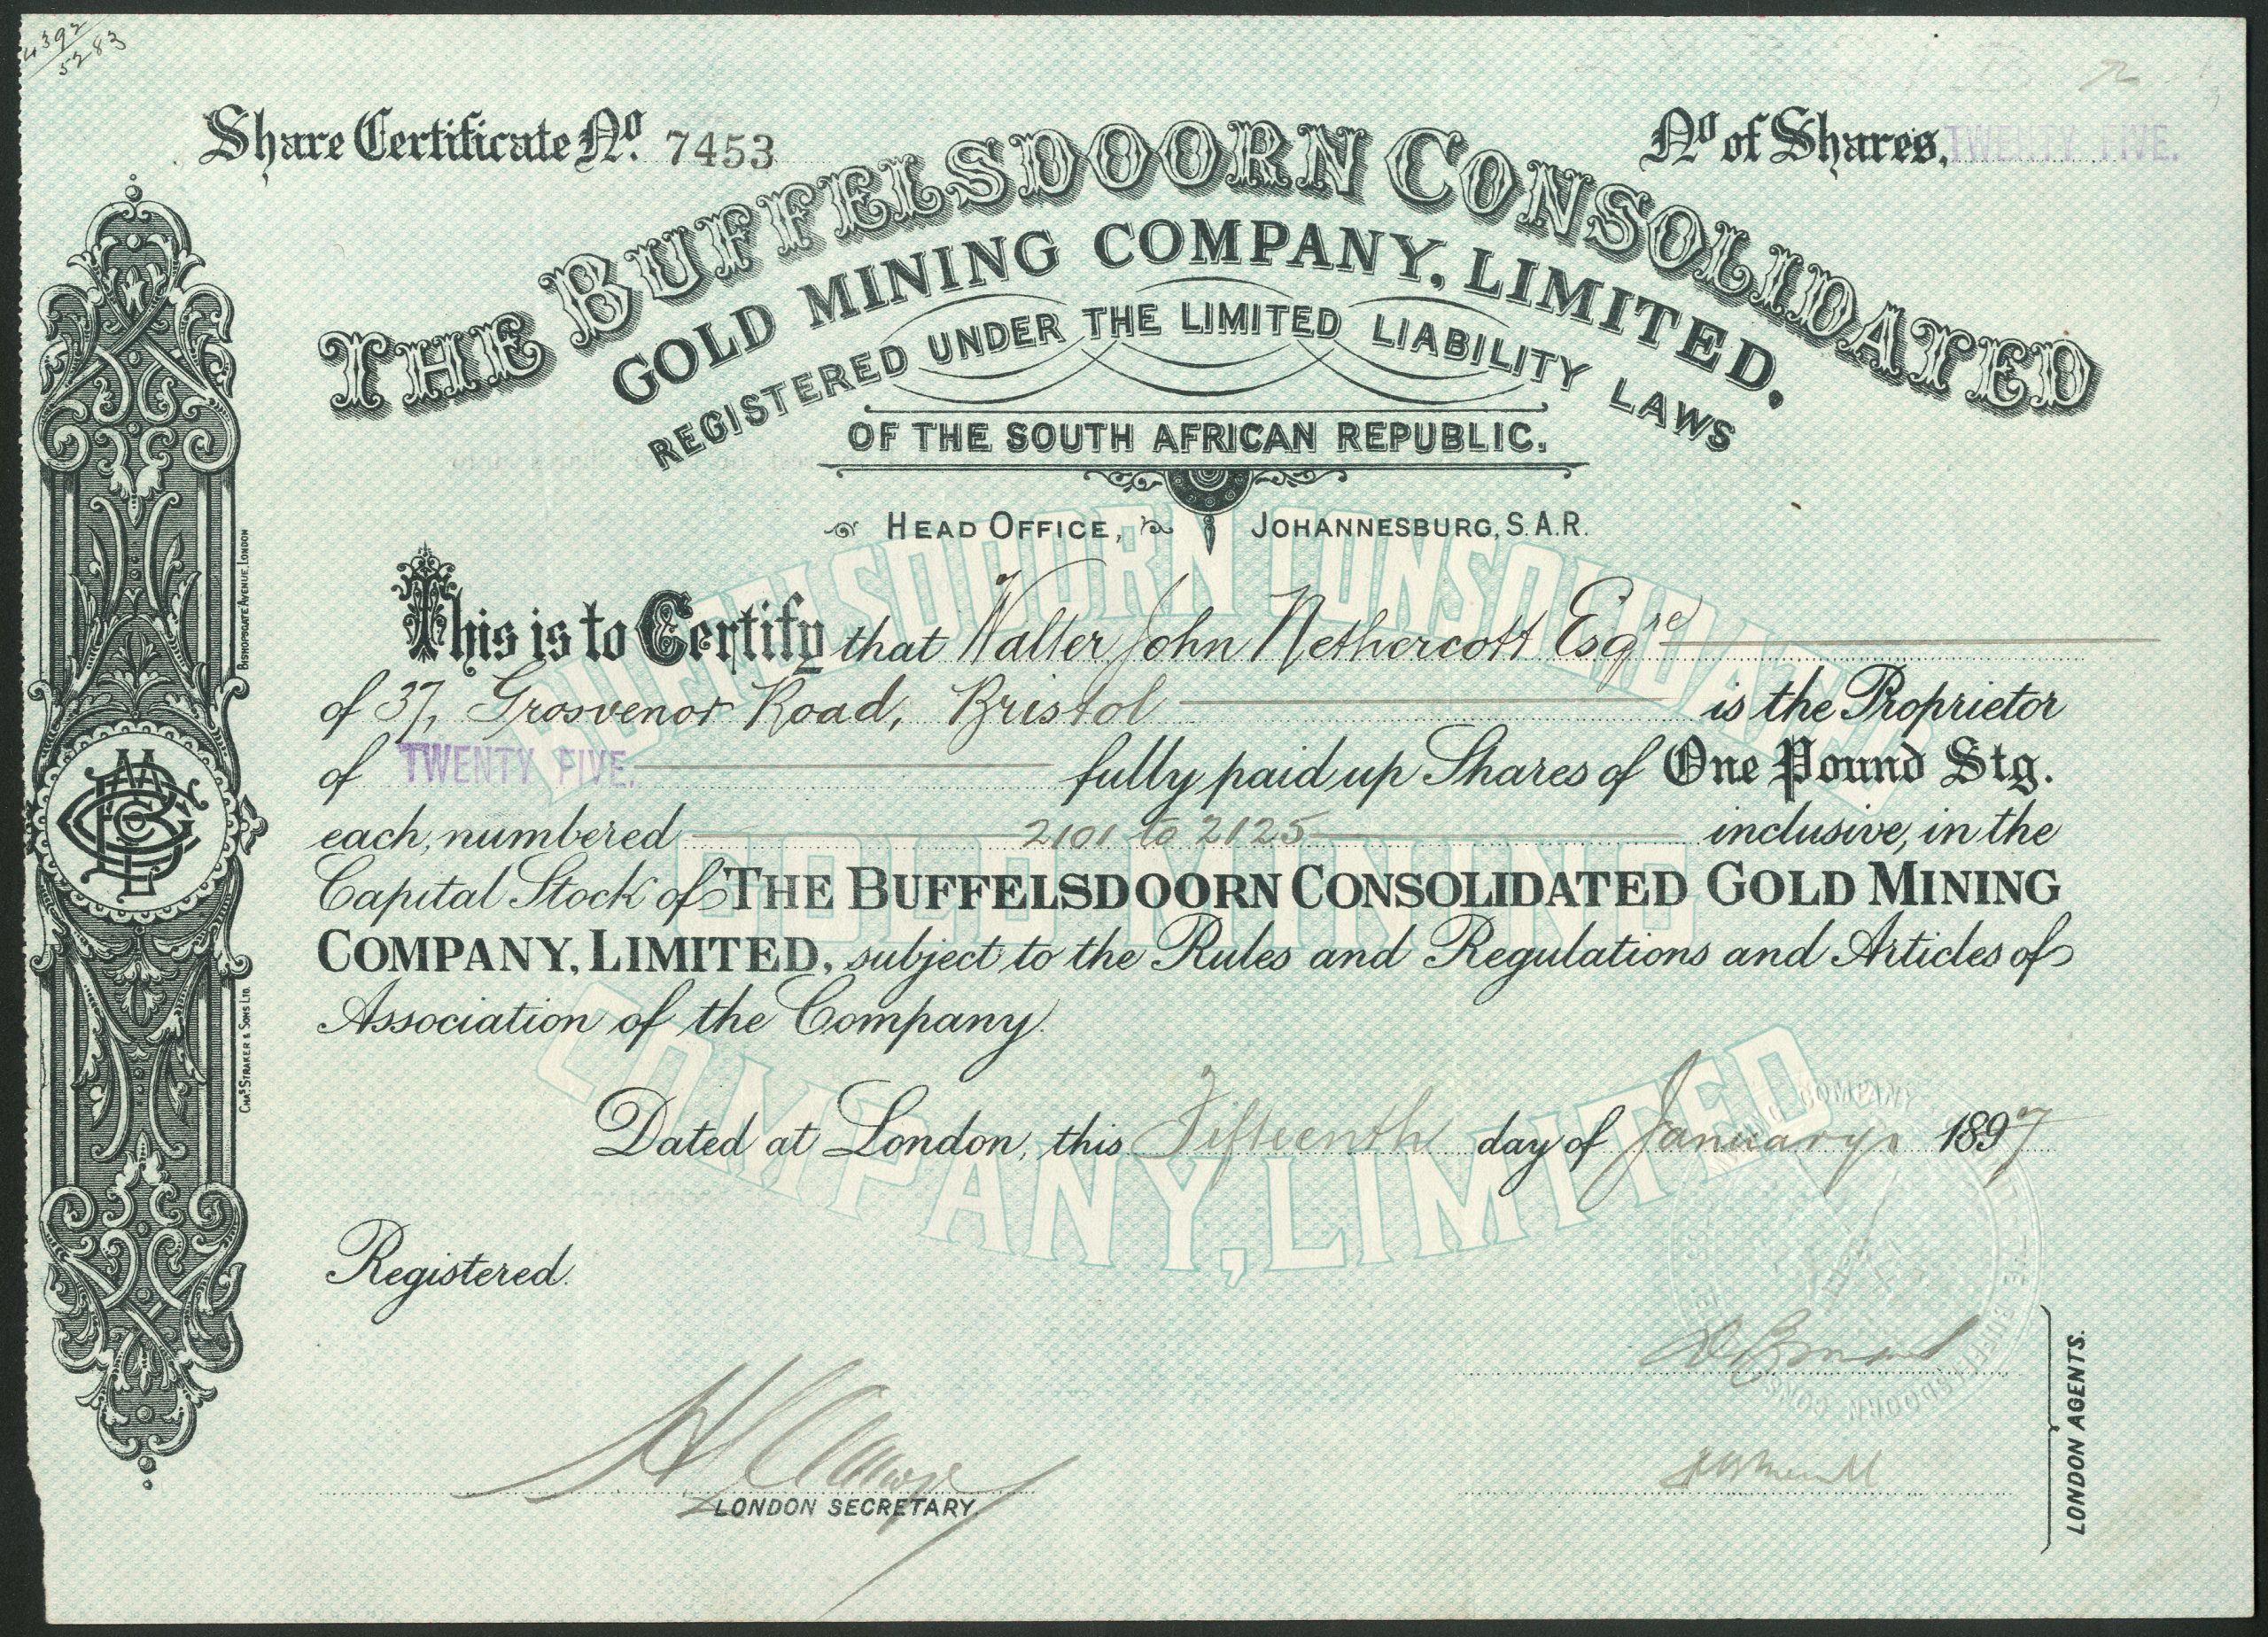 4392
5283
Share Certificate No. 7453
No of Shares, TWENTY FIVE.
THE BUFFELSDOORN CONSOLIDATED
GOLD MINING COMPANY, LIMITED.
REGISTERED UNDER THE LIMITED LIABILITY LAWS
OF THE SOUTH AFRICAN REPUBLIC.
HEAD OFFICE, JOHANNESBURG, S.A.R.
This is to Certify that Walter John Nethercott Esqre
of 37, Grosvenor Road, Bristol is the Proprietor
of TWENTY FIVE. fully paid up Shares of One Pound Stg.
each, numbered 2101 to 2125 inclusive, in the
Capital Stock of THE BUFFELSDOORN CONSOLIDATED GOLD MINING
COMPANY, LIMITED, subject to the Rules and Regulations and Articles of
Association of the Company.
Dated at London, this Fifteenth day of January 1897
Registered.
LONDON SECRETARY.
LONDON AGENTS.
CHAS. STRAKER & SONS LTD. BISHOPSGATE AVENUE, LONDON
BUFFELSDOORN CONSOLIDATED
GOLD MINING
COMPANY, LIMITED